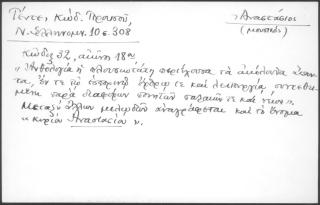 Γέντε, Κώδ. Πειουσοῦ,
Ν. Ἑλληνομν. 10 σ. 308
Ἀναστάσιος
(μουσικός)
Κῶδιξ 32, αἰῶνος 18ου
« Ἀνθολογία ἡ πλουσιωτάτη περιέχουσα τὰ ἀκόλουθα ἅπαν-
τα, ἔν τε τῷ ἑσπερινῷ ὄρθρῳ τε καὶ λειτουργίᾳ συντεθει-
μένη παρὰ διαφόρων ποιητῶν παλαιῶν τε καὶ νέων».
Μεταξὺ ἄλλων μελῳδῶν ἀναγράφεται καὶ τὸ ὄνομα
« κυρίου Ἀναστασίου ».